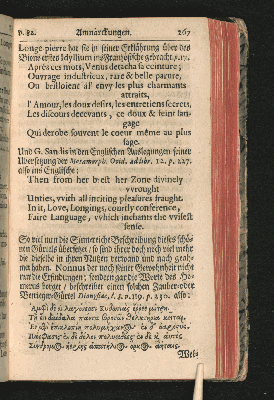 p. 82. Anmärckungen. 267
Longe pierre hat sie in seiner Erklährung über des
Bions erstes Idyllium ins Französische gebracht. p. 17.
Apres ces mots, Venus detacha se ceinture;
Ouvrage industrieux, rare & belle parure,
Ou brilloient à l'envy les plus charmants
attraits,
l'Amour, les doux desirs, les entretiens secrets,
Les discours decevants, ce doux & feint lan-
gage
Qui derobe souvent le coeur même au plus
sage.
Und G. Sandis in den Englischen Auslegungen seiner
Ubersetzung der Metamorph. Ovid. ad libr. 12. p. 227.
also ins Englische:
Then from her brest her Zone divinely
vvrought
Unties, vvith all inciting pleasures fraught.
In it, Love, Longings, courtly conference,
Faire Language, vvhich inchants the vvisest
sense.
So viel nun die Sinnreiche Beschreibung dieses schö-
nen Gürtels übersetzt, so sind ihrer doch noch viel mehr
die dieselbe in ihren Nutzen verwand und nach geah-
met haben. Nonnus der noch seiner Gewohnheit nicht
nur die Erfindungen, sondern gar die Worte des Ho-
merus borget / beschreibet einen solchen Zauber-oder
Venusgürtel Dionysiac. l. 8. p. 230. also:
Web